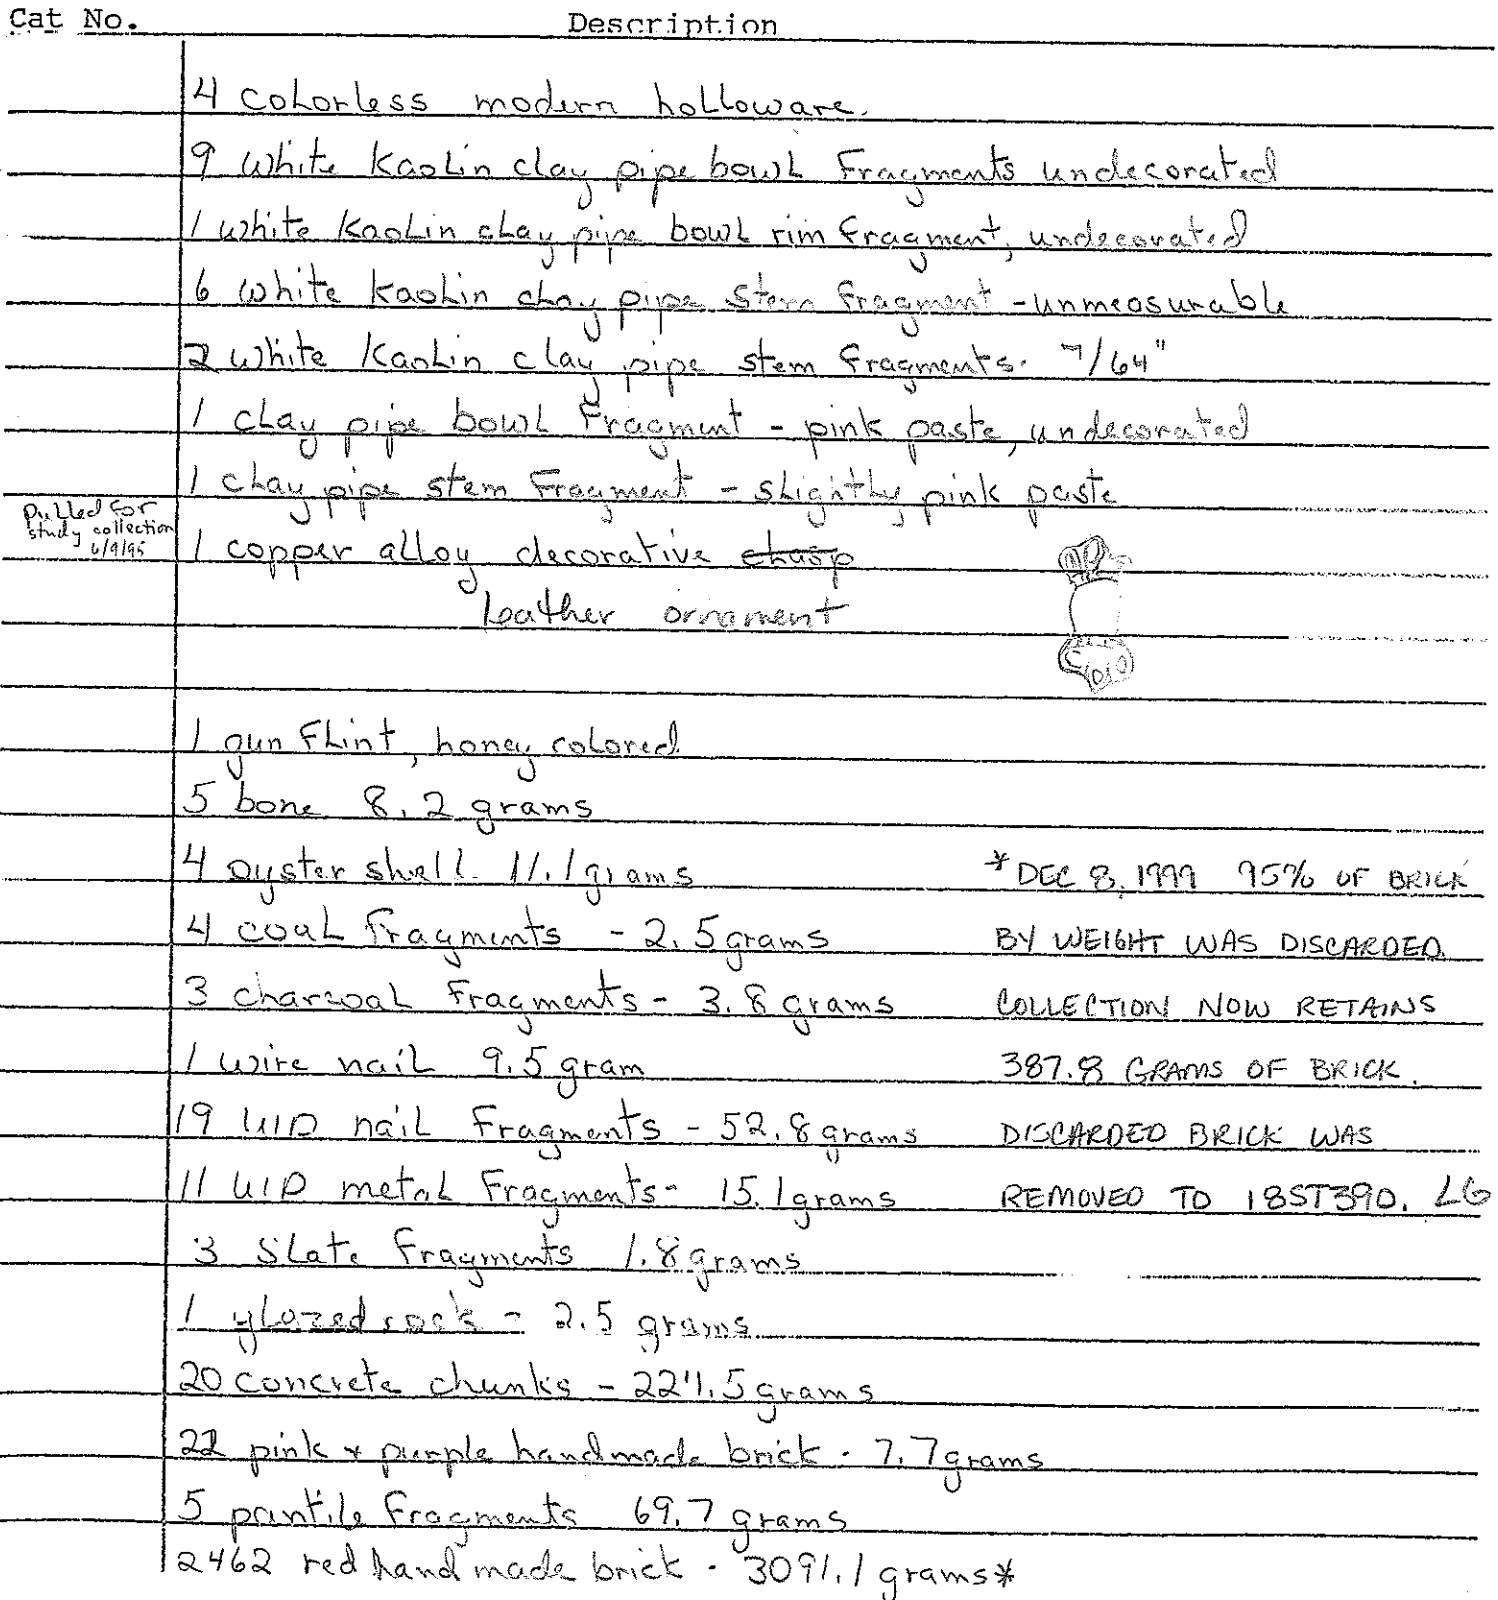 Cat No. Description
4 colorless modern holloware.
9 white kaolin clay pipe bowl fragments undecorated
1 white kaolin clay pipe bowl rim fragment, undecorated
6 white kaolin clay pipe stem fragment - unmeasurable
2 white kaolin clay pipe stem fragments. 7/64"
1 clay pipe bowl fragment - pink paste, undecorated
1 clay pipe stem fragment - slightly pink paste
pulled for
study collection
6/9/95
1 copper alloy decorative clasp
leather ornament
1 gun flint, honey colored
5 bone 8.2 grams
4 oyster shell 11.1 grams
4 coal fragments - 2.5 grams
3 charcoal fragments - 3.8 grams
1 wire nail 9.5 gram
19 UID nail fragments - 52.8 grams
11 UID metal fragments - 15.1 grams
3 slate fragments 1.8 grams
1 glazed rock - 2.5 grams
20 concrete chunks - 227.5 grams
22 pink + purple handmade brick - 7.7 grams
5 pantile fragments 69.7 grams
2462 red hand made brick - 3091.1 grams*
*DEC 8, 1999 95% OF BRICK
BY WEIGHT WAS DISCARDED.
COLLECTION NOW RETAINS
387.8 GRAMS OF BRICK.
DISCARDED BRICK WAS
REMOVED TO 18ST390. LG